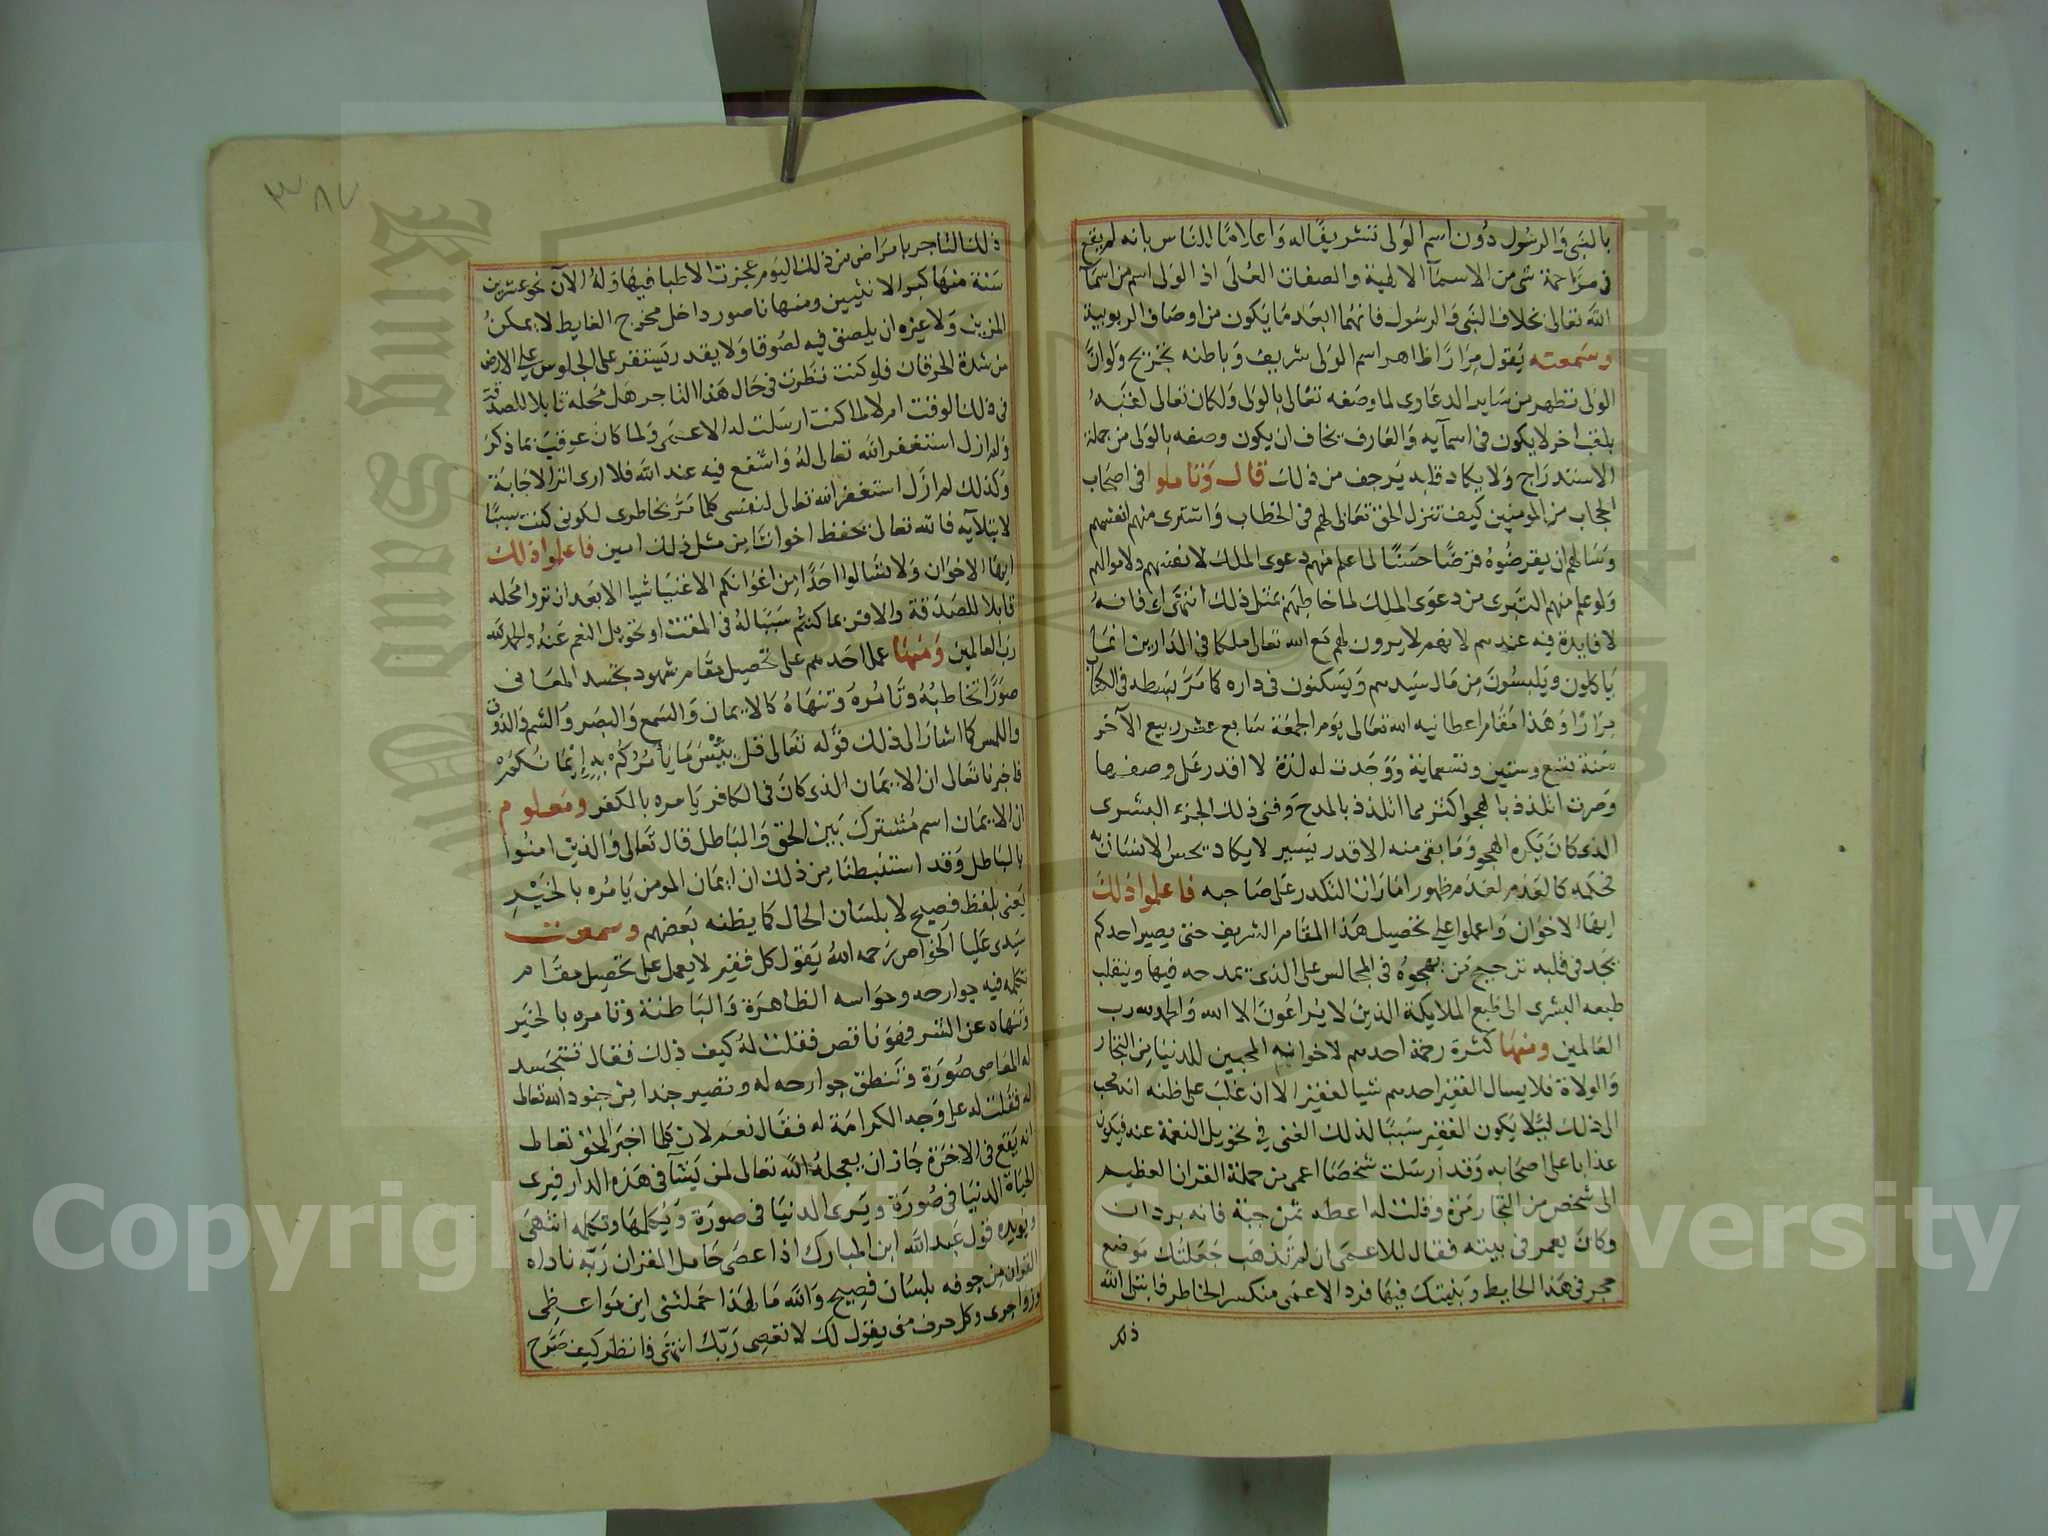 بالنبى والرسول دون اسم الولى تشريفا له واعلاما للناس بانه لم يقع
فى مزاحمة شى من الاسمآ الالهية والصفات العلى اذ الولى اسم من اسمآ
الله تعالى بخلاف النبى والرسول فانهما ابعد ما يكون من اوصاف الربوبية
وسمعته يقول مرارا ظاهر اسم الولى شريف وباطنه تجريح ولو ان
الولى تطهر من ساير الدعاوى لما وصفه تعالى بالولى ولكان تعالى لقبه
بلقب اخر لا يكون فى اسمآيه والعارف يخاف ان يكون وصفه بالولى من جملة
الاستدراج ولا يكاد قلبه يرجف من ذلك قال وتاملوا فى اصحاب
الحجاب من المومنين كيف تنزل الحق تعالى لهم فى الخطاب واشترى منهم انفسهم
وسالهم ان يقرضوه قرضا حسنا لما علم منهم دعوى الملك لانفسهم ولاموالهم
ولو علم منهم التبرى من دعوى الملك لما خاطبهم بمثل ذلك انتهى اى فانه
لا فايدة فيه عندهم لانهم لا يرون لهم مع الله تعالى ملكا فى الدارين انما
ياكلون ويلبسون من مال سيدهم ويسكنون فى داره كما مر بسطه فى الكتاب
مرارا وهذا مقام اعطانيه الله تعالى يوم الجمعة سابع عشر ربيع الآخر
سنة تسع وستين وتسعماية ووجدت له لذة لا اقدر على وصفها
وصرت اتلذذ بالهجو اكثر مما اتلذذ بالمدح وفنى ذلك الجزء البشرى
الذى كان يكره الهجو وما بقى منه الا قدر يسير لا يكاد يحس الانسان به
فحكمه كالعدم لعدم ظهور امارات التكدر على صاحبه فاعلموا ذلك
ايها الاخوان واعملوا على تحصيل هذا المقام الشريف حتى يصير احدكم
يجد فى قلبه ترجيح من يهجوه فى المجالس على الذى يمدحه فيها وينقلب
طبعه البشرى الى طبع الملايكة الذين لا يراعون الا الله والحمد لله رب
العالمين ومنها كثرة رحمة احدهم لاخوانهم المحبين للدنيا من التجار
والولاة فلا يسال الفقير احدهم شيا لفقير الا ان غلب على ظنه انه يجب
الى ذلك ليلا يكون الفقير سببا لذلك الغنى فى تحويل النعمة عنه فيكون
عذابا على اصحابه وقد ارسلت شخصا اعمى من حملة القران العظيم
الى شخص من التجار مرة وقلت له اعطه ثمن جبة فانه بردان
وكان يعمر فى بيته فقال للاعمى ان لم تذهب جعلتك موضع
حجر فى هذا الحايط وبنيتك فيها فرد الاعمى منكسر الخاطر فابتلى الله
ذلك
٣٨٧
ذلك التاجر بامراض من ذلك اليوم عجزت الاطبا فيها وله الآن نحو عشرين
سنة منها كبر الانثيين ومنها ناصور داخل مخرج الغايط لا يمكن
المزين ولا غيره ان يلصق فيه لصوقا ولا يقدر يستقر على الجلوس على الارض
من شدة الحرقان فلو كنت نظرت فى حال هذا التاجر هل محله قابلا للصدقة
فى ذلك الوقت ام لا لما كنت ارسلت له الاعمى ولما كان عوقب بما ذكر
ولم ازل استغفر الله تعالى له واشفع فيه عند الله فلا ارى اثر الاجابة
وكذلك لم ازل استغفر الله تعالى لنفسى كلما مر بخاطرى لكونى كنت سببا
لابتلآيه فالله تعالى يحفظ اخواننا من مثل ذلك امين فاعلموا ذلك
ايها الاخوان ولا تسالوا احدا من اخوانكم الاغنيا شيا الا بعد ان تروا محله
قابلا للصدقة والا فربما كنتم سببا له فى المقت او تحويل النعم عنه والحمد لله
رب العالمين ومنها عمل احدهم على تحصيل مقام شهود تجسد المعانى
صورا تخاطبه وتامره وتنهاه كالايمان والسمع والبصر والشم والذوق
واللمس كما اشار الى ذلك قوله تعالى قل بئس ما يأمركم به إيمانكم
فاخبرنا تعالى ان الايمان الذى كان فى الكافر يامره بالكفر ومعلوم
ان الايمان اسم مشترك بين الحق والباطل قال تعالى والذين امنوا
بالباطل وقد استنبطنا من ذلك ان ايمان المومن يامره بالخير
يعنى بلفظ فصيح لا بلسان الحال كما يظنه بعضهم وسمعت
سيدى عليا الخواص رحمه الله يقول كل فقير لا يعمل على تحصيل مقام
تكلمه فيه جوارحه وحواسه الظاهرة والباطنة وتامره بالخير
وتنهاه عن الشر فهو ناقص فقلت له كيف ذلك فقال تتجسد
له المعاصى صورة وتنطق جوارحه له وتصير جندا من جنود الله تعالى
له فقلت له على وجه الكرامة له فقال نعم لان كلما اخبر الحق تعالى
انه يقع فى الاخرة جاز ان يعجله الله تعالى لمن يشآ فى هذه الدار فيرى
الحياة الدنيا فى صورة ويرى الدنيا فى صورة ويكلمها وتكلمه انتهى
ويويده قول عبد الله ابن المبارك اذا عصى حامل القران ربه ناداه
القران من جوفه بلسان فصيح والله ما لهذا حملتنى اين مواعظى
وزواجرى وكل حرف منى يقول لك لا تعصى ربك انتهى فانظر كيف صرح